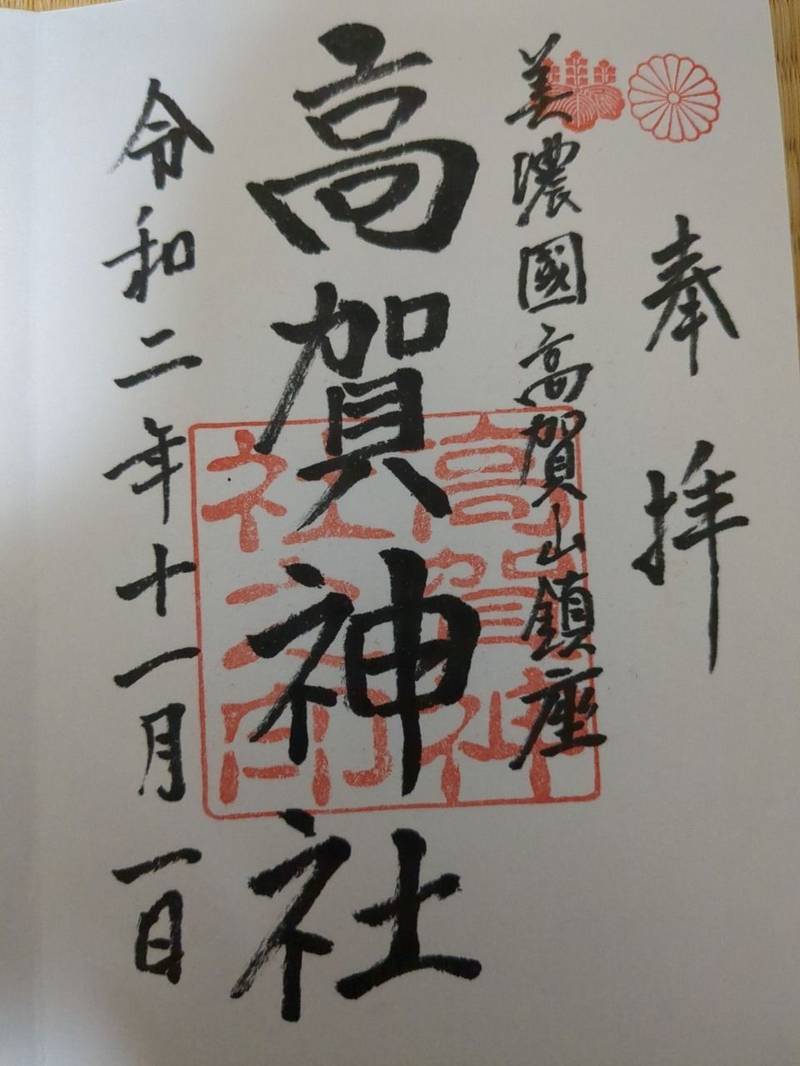 奉拝
美濃國高賀山鎮座
高賀神社
令和二年十一月一日
高賀神
社之印